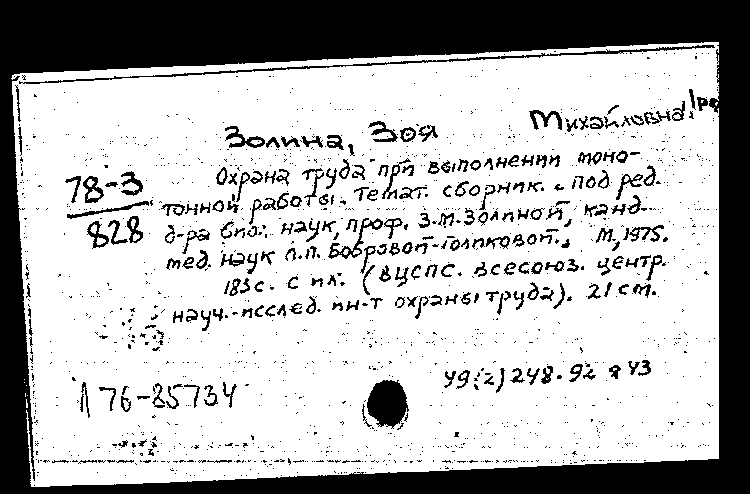 Золина, Зоя Михайловна,
78-3
828
Охрана труда при выполнении моно-
тонной работы. Темат. сборник. Под ред.
д-ра биол. наук, проф. З.М.Золиной, канд.
мед. наук Л.П. Бобровой-Голиковой. М., 1975.
183 с. с ил. (ВЦСПС. Всесоюз. центр.
науч.-исслед. ин-т охраны труда). 21 см.
Л 76-85734
У9(2)248.92 я43